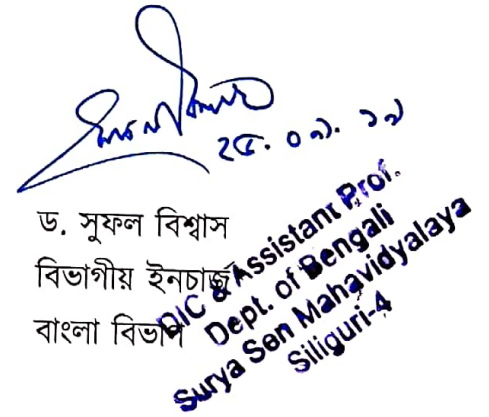 ২৫. ০৭. ১৭
ড. সুফল বিশ্বাস
বিভাগীয় ইনচার্জ
বাংলা বিভাগ
DIC & Assistant Prof.
Dept. of Bengali
Surya Sen Mahavidyalaya
Siliguri-4